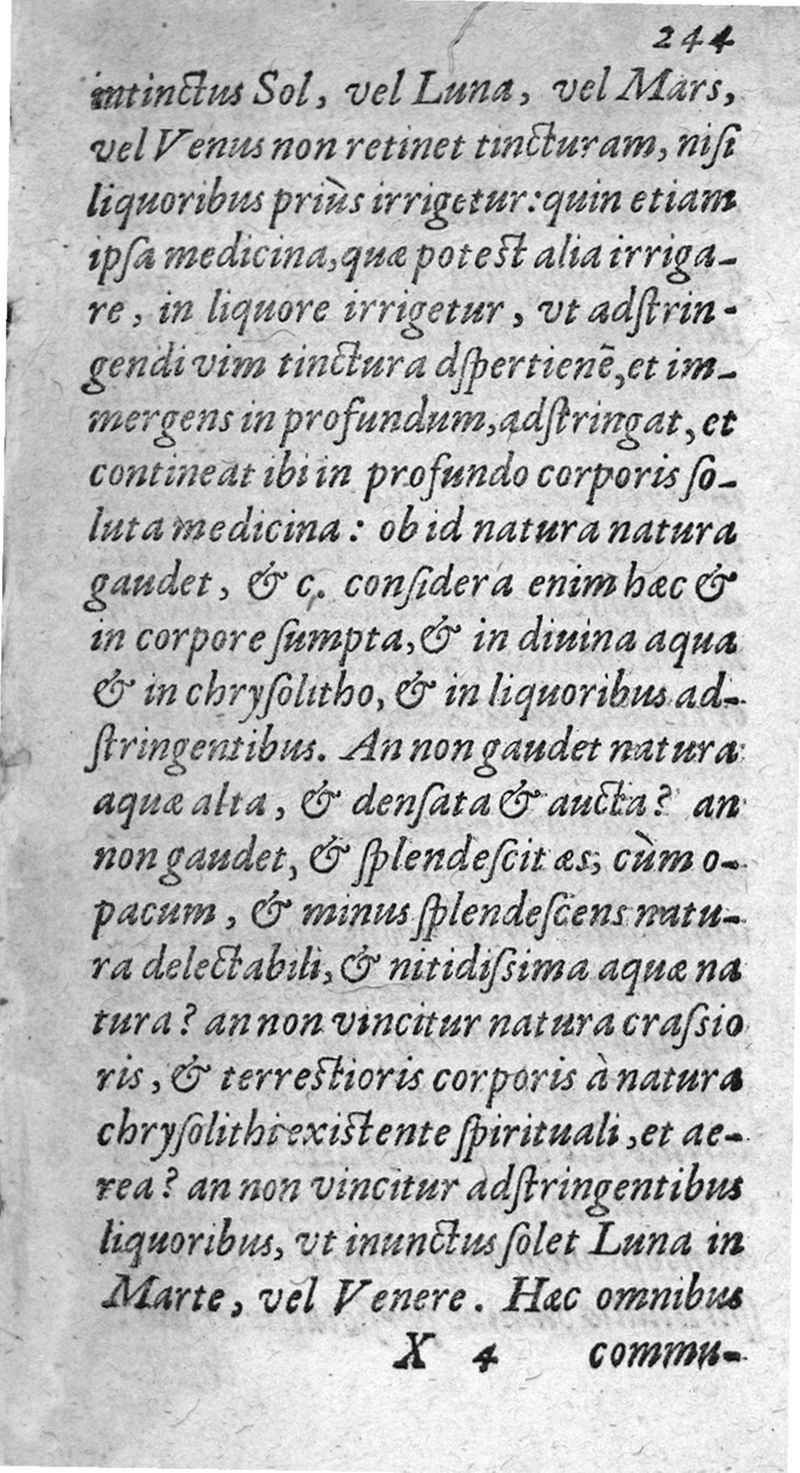 244
intinctus Sol, vel Luna, vel Mars,
vel Venus non retinet tincturam, niſi
liquoribus priùs irrigetur: quin etiam
ipſa medicina, quæ potest alia irriga-
re, in liquore irrigetur, vt adſtrin-
gendi vim tinctura dſpertienẽ, et im-
mergens in profundum, adſtringat, et
contineat ibi in profundo corporis ſo-
luta medicina: ob id natura natura
gaudet, & c. conſidera enim hæc &
in corpore ſumpta, & in diuina aqua
& in chryſolitho, & in liquoribus ad-
ſtringentibus. An non gaudet natura
aquæ alta, & denſata & aucta? an
non gaudet, & ſplendeſcit æs, cùm o-
pacum, & minus ſplendeſcens natu-
ra delectabili, & nitidiſsima aquæ na
tura? an non vincitur natura craſsio
ris, & terrestioris corporis à natura
chryſolithi existente ſpirituali, et ae-
rea? an non vincitur adſtringentibus
liquoribus, vt inunctus ſolet Luna in
Marte, vel Venere. Hæc omnibus
X 4 commu-